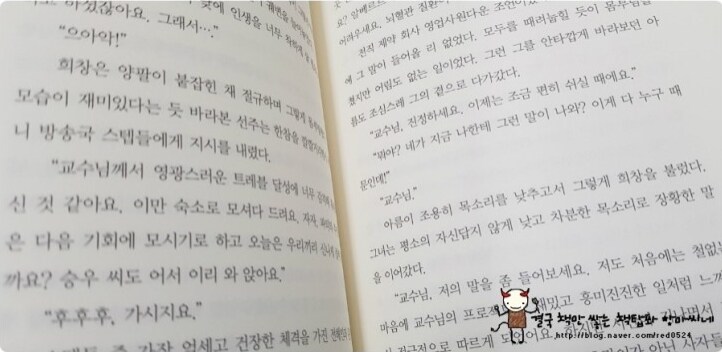 하셨잖아요. 그래서…"
인생을 너무
"으아악!"
희창은 양팔이 붙잡힌 채 절규하며 그렇게
모습이 재미있다는 듯 바라본 선주는 한참을
니 방송국 스텝들에게 지시를 내렸다.
"교수님께서 영광스러운 트레블 달성에 너무
신 것 같아요. 이만 숙소로 모셔다 드려요. 자자,
은 다음 기회에 모시기로 하고 오늘은 우리끼리 신나게
까요? 승우 씨도 어서 이리 와 앉아요."
"후후후, 가시지요."
가장 억세고 건장한 체격을 가진
어려우세요. 뇌혈관
전직 제약 회사 영업사원다운 조언이
에 그 말이 들어올 리 없었다. 모두를 때려눕힐 듯이
쳤지만 어림도 없는 일이었다. 그런 그를 안타깝게 바라보던 아
름도 조심스레 그의 곁으로 다가갔다.
"교수님, 진정하세요. 이제는 조금 편히 쉬실 때에요."
"뭐야? 네가 지금 나한테 그런 말이 나와? 이게 다 누구 때
문인데!"
"교수님,"
아름이 조용히 목소리를 낮추고서 그렇게 희창을 불렀다.
그녀는 평소의 자신답지 않게 낮고 차분한 목소리로 장황한 말
을 이어갔다.
"교수님, 저의 말을 좀 들어보세요. 저도 처음에는 철없는
마음에 교수님의 프로젝 재밌고 흥미진진한 일처럼 느껴
결국 책만 쌓는 책탑파 향마씨네
http://blog.naver.com/red0524